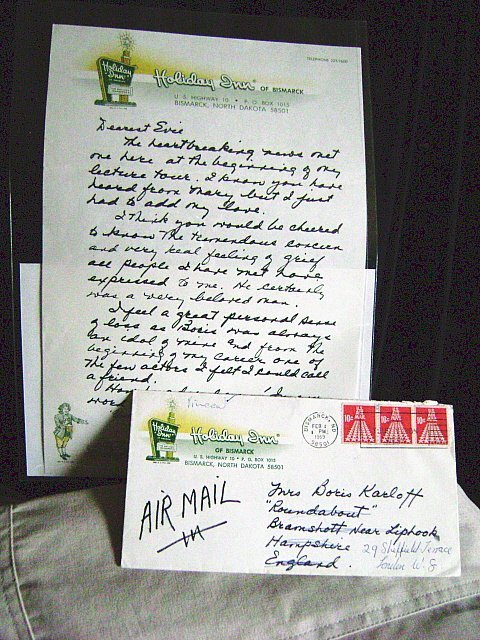 TELEPHONE 223-9600
Holiday Inn
Holiday Inn® OF BISMARCK
U. S. HIGHWAY 10 • P. O. BOX 1015
BISMARCK, NORTH DAKOTA 58501
Dearest Evie
The heartbreaking news met
one here at the beginning of my
lecture tour. I know you have
heard from Mary but I just
had to add my love.
I think you would be cheered
to know the tremendous concern
and very real feeling of grief
all people I have met have
expressed to me. He certainly
was a very beloved man.
I feel a great personal sense
of loss as Boris was always
an idol of mine and from the
beginning of my career one of
the few actors I felt I could call
a friend.
Vincent
Holiday Inn
Holiday Inn®
OF BISMARCK
U. S. HIGHWAY 10 • P. O. BOX 1015
BISMARCK, NORTH DAKOTA 58501
BISMARCK, ND
FEB 4
PM
1969
58501
10c
10c
10c
AIR MAIL
Mrs Boris Karloff
"Roundabout"
Bramshott Near Liphook
Hampshire
England.
29 Sheffield Terrace
London W. 8